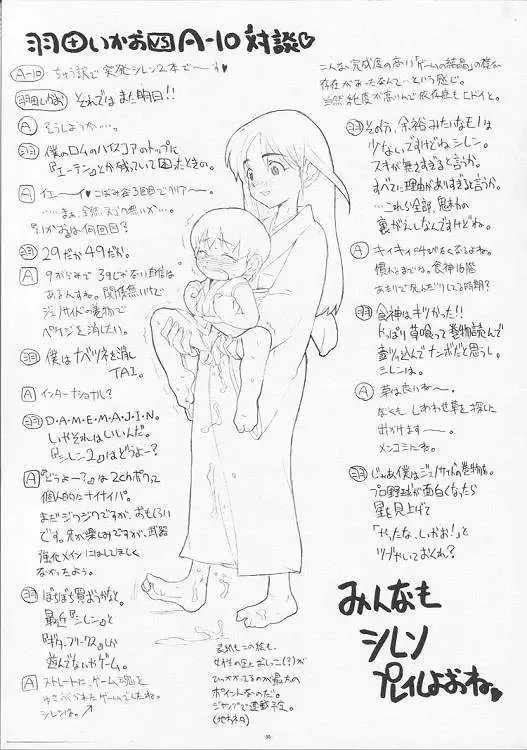 羽田いかおVS A-10 対談♡
A-10 ちゅう訳で突発シレン2本で〜す♥
羽田いかお それではまた明日!!
A そうしようか…。
羽 僕のロムのハイスコアのトップに
『エーテン』とか残っていて困ったときの。
A イエ〜イ♥こばみ谷3回目でクリア〜。
いかおは何回目?
羽 29だか49だか。
あるんすね。関係無いけど
ジェノサイドの巻物で
ペケジを消したい。
羽 僕はナベツネを消し
TAI。
A インターナショナル?
羽 D・A・M・E・M・A・J・I・N。
しいやそれはいいんだ。
『シレン2』はどうよー?
A 『どうよー?』は2chポクって
個人的にナイナイバ。
まだジワジワですが、おもしろい
です。先が楽しみですが、武器
強化メインにはしてほしく
なかったよう。
羽 ぼちぼち買おうかなと。
最近『シレン』と
『ギターフリークス』しか
遊んでないやゲーム。
A ストレートに、ゲーム魂を
ゆさぶられたゲームでしたね。
シレンは。
こんな完成度の高い「ゲームの結晶」の様な
存在があったなんて…という感じ。
当然純度が高いんで依存症もヒドイと。
羽 その分、余裕みたいなモノは
少ないですけどねシレン。
スキが無さすぎると言うか。
すべてに理由がありすぎると言うか。
…これら全部、思わの
裏がえしなんですけどね。
A キィキィ叫びたくなるよね。
慣れるまでは。食神16階
あたりで死んだりしてる時期?
羽 食神はキツかった!!
やっぱり草喰って巻物読んで
壷ほうり込んでナンボだと思うし。
シレンは。
A 草は良いね〜。
ぼくも しあわせ草を探しに
出かけます〜。
メンコミにネ。
羽 じゃあ僕はジェノサイドの巻物を。
プロ野球が面白くなったら
星を見上げて
「やったな、いかお!」と
ツブやいておくれ?
みんなも
シレン
プレイしよおね♥
表紙もこの絵も、
女性の足におしっこ(?)が
ひっかかってるのが最大の
ポイントなのだ。
ジャンプで連載決定。